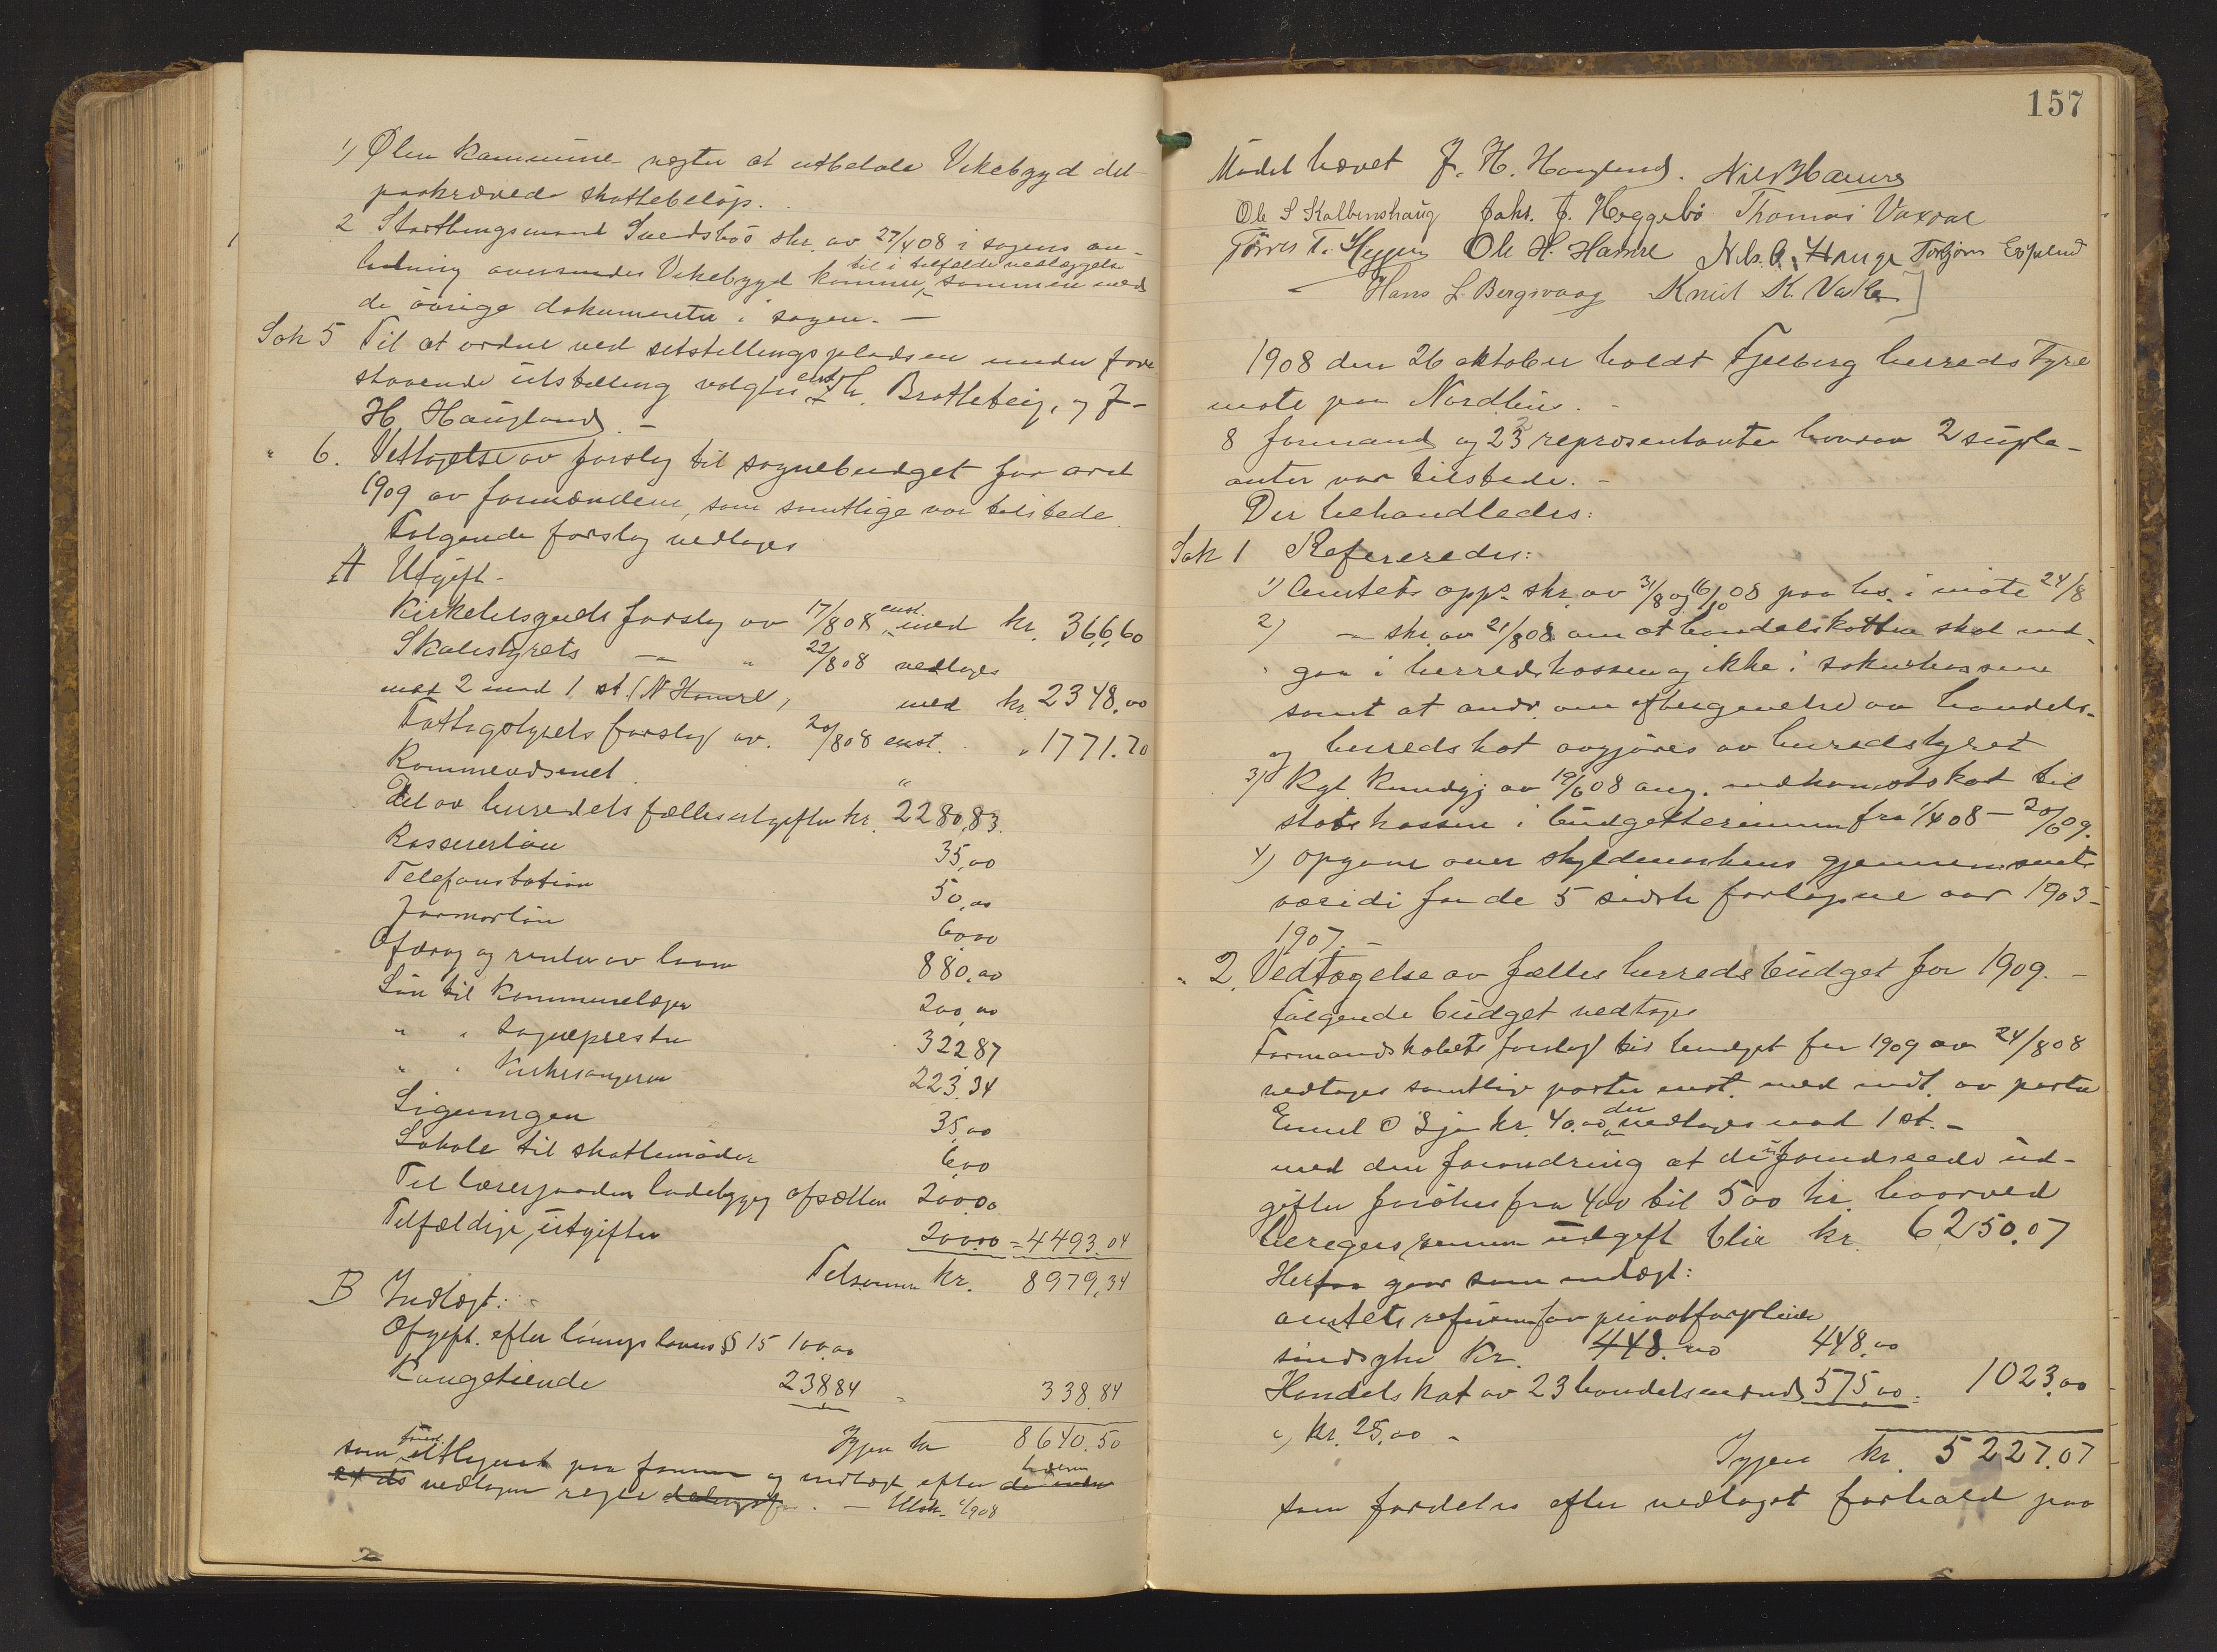 1) Ølen kommune negter at utbetale Vikebygd det
paakrævede skattebeløp.
2 Stortingsmand Svedsbøs skr. av 27/4 08 i sagens an-
ledning oversendes Vikebygd kommune til i tilfælde vedlæggelse sammen med
de øvrige dokumenter i sagen. —
Sak 5 Til at ordne ved utstillingspladsen under fore
staaende utstilling valgtes enst. Brattebeig, og J-
H. Haugland. —
" 6. Vettagelse av forslag til sognebudget for aaret
1909 av formændene, som samtlige var tilstede.
Følgende forslag vedtages
A Utgift.
Kirketilsynets forslag av 17/8 08 enst. med kr. 366,60
Skolestyrets — " 22/8 08 vedtages
med 2 mod 1 st. (N Hamre) med kr 2348,00
Fattigstyrets forslag av 20/8 08 enst. " 1771.70
Kommendsenet "
Del av herredets fællesutgifter kr. 2280,83.
Kassererløn 35,00
Telefonstation 50,00
Jormorløn 60,00
Afdrag og renter av laan 880,00
Løn til Kommunelæge 200,00
" " Sogneprestn 322,87
" " Kirkesangeren 223,34
Ligningen 35,00
Lokale til skattemøder 6,00
Til lærergaarden ladebygg afsættes 200,00
Tilfældige utgifter 200,00 = 4493.04
Tilsammen kr. 8979,34
B Indtægt:
Afgift. efter lønnings lovens § 15 100,00
Kongetiende 238,84 " 338.84
Igjen kr 8640.50
som utlignes paa formue og indtægt efter
vedtagen regle. —
157
Mødet hævet J. H. Haugland. Nils Hamre
Ole S Kalbenshaug Johs. J. Heggebø Thomas Vaxdal
Tørres T. Heggen Ole H. Hamre Nils. A. Hauge Torbjørn Espelid
Hans L. Bergsvaag Knut K. Vaske
1908 den 26 oktober holdt Fjelberg herredstyre
møte paa Nordheim. -
8 formænd og 23 representanter hvorav 2 suple-
anter var tilstede. -
Der behandledes:
Sak 1 Refereredes:
1) Amtets opp. skr. av 31/8 og 16/10 08 paa hs. i møte 24/8
2) — skr. av 21/8 08 om at handelskatten skal ind-
gaa i herredskassen og ikke i sokneskassene
samt at andr. om eftergivelse av handels-
og herredskat avgjøres av herredstyret
3) Kgl. Kundgj av 19/6 08 ang. indkomstskat til
statskassen i budgetterminen fra 1/4 08 — 30/6 09.
4) opgave over skyldmarkens gjennemsnits
værdi for de 5 sidste forløpne aar 1903-
1907. —
" 2. Vedtagelse av fælles herredsbudget for 1909. —
Følgende budget vedtages
Formandskabets forslag til budget for 1909 av 24/8 08
vedtages samtlige poster enst. med undt. av posten
Emmel O Sjo kr. 40.00 der vedtages mod 1 st. —
med den forandring at de uforudseede ud-
gifter forøkes fra 400 til 500 kr. hvorved
beregnes samme utgift blir kr. 6250.07
Herfra gaar som indtægt:
amtets refusion for privatforpleiede
sindsyke Kr. 448.00 448.00
Handelskat av 23 handelsmænd 575,00 = 1023,00
a) kr. 25,00 -
Igjen kr. 5227.07
som fordeles efter vedtaget forhold paa